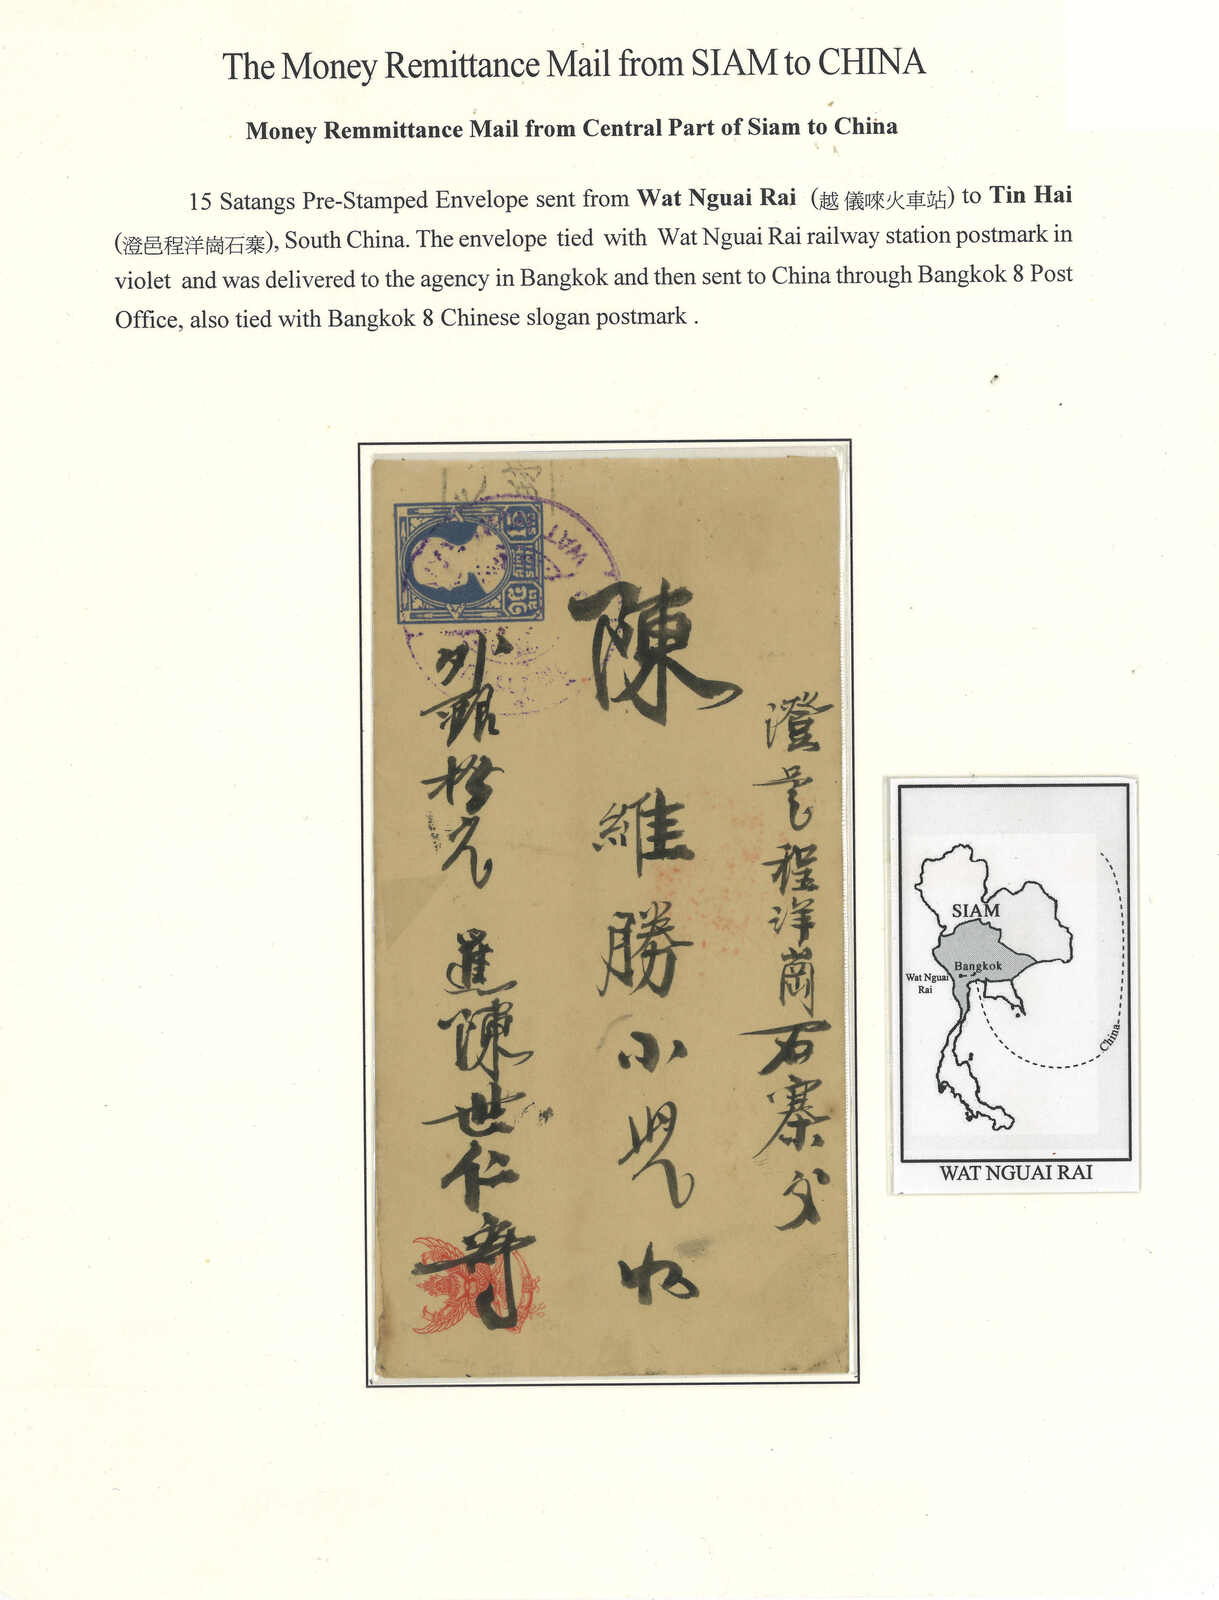 The Money Remittance Mail from SIAM to CHINA
Money Remmittance Mail from Central Part of Siam to China
15 Satangs Pre-Stamped Envelope sent from Wat Nguai Rai (越 儀唻火車站) to Tin Hai
(澄邑程洋崗石寨), South China. The envelope tied with Wat Nguai Rai railway station postmark in
violet and was delivered to the agency in Bangkok and then sent to China through Bangkok 8 Post
Office, also tied with Bangkok 8 Chinese slogan postmark .
澄邑程洋崗石寨交
陳維勝小兒收
外銀拾元 暹陳世仁寄
15
๑๕
WAT
SIAM
Bangkok
Wat Nguai
Rai
China
WAT NGUAI RAI